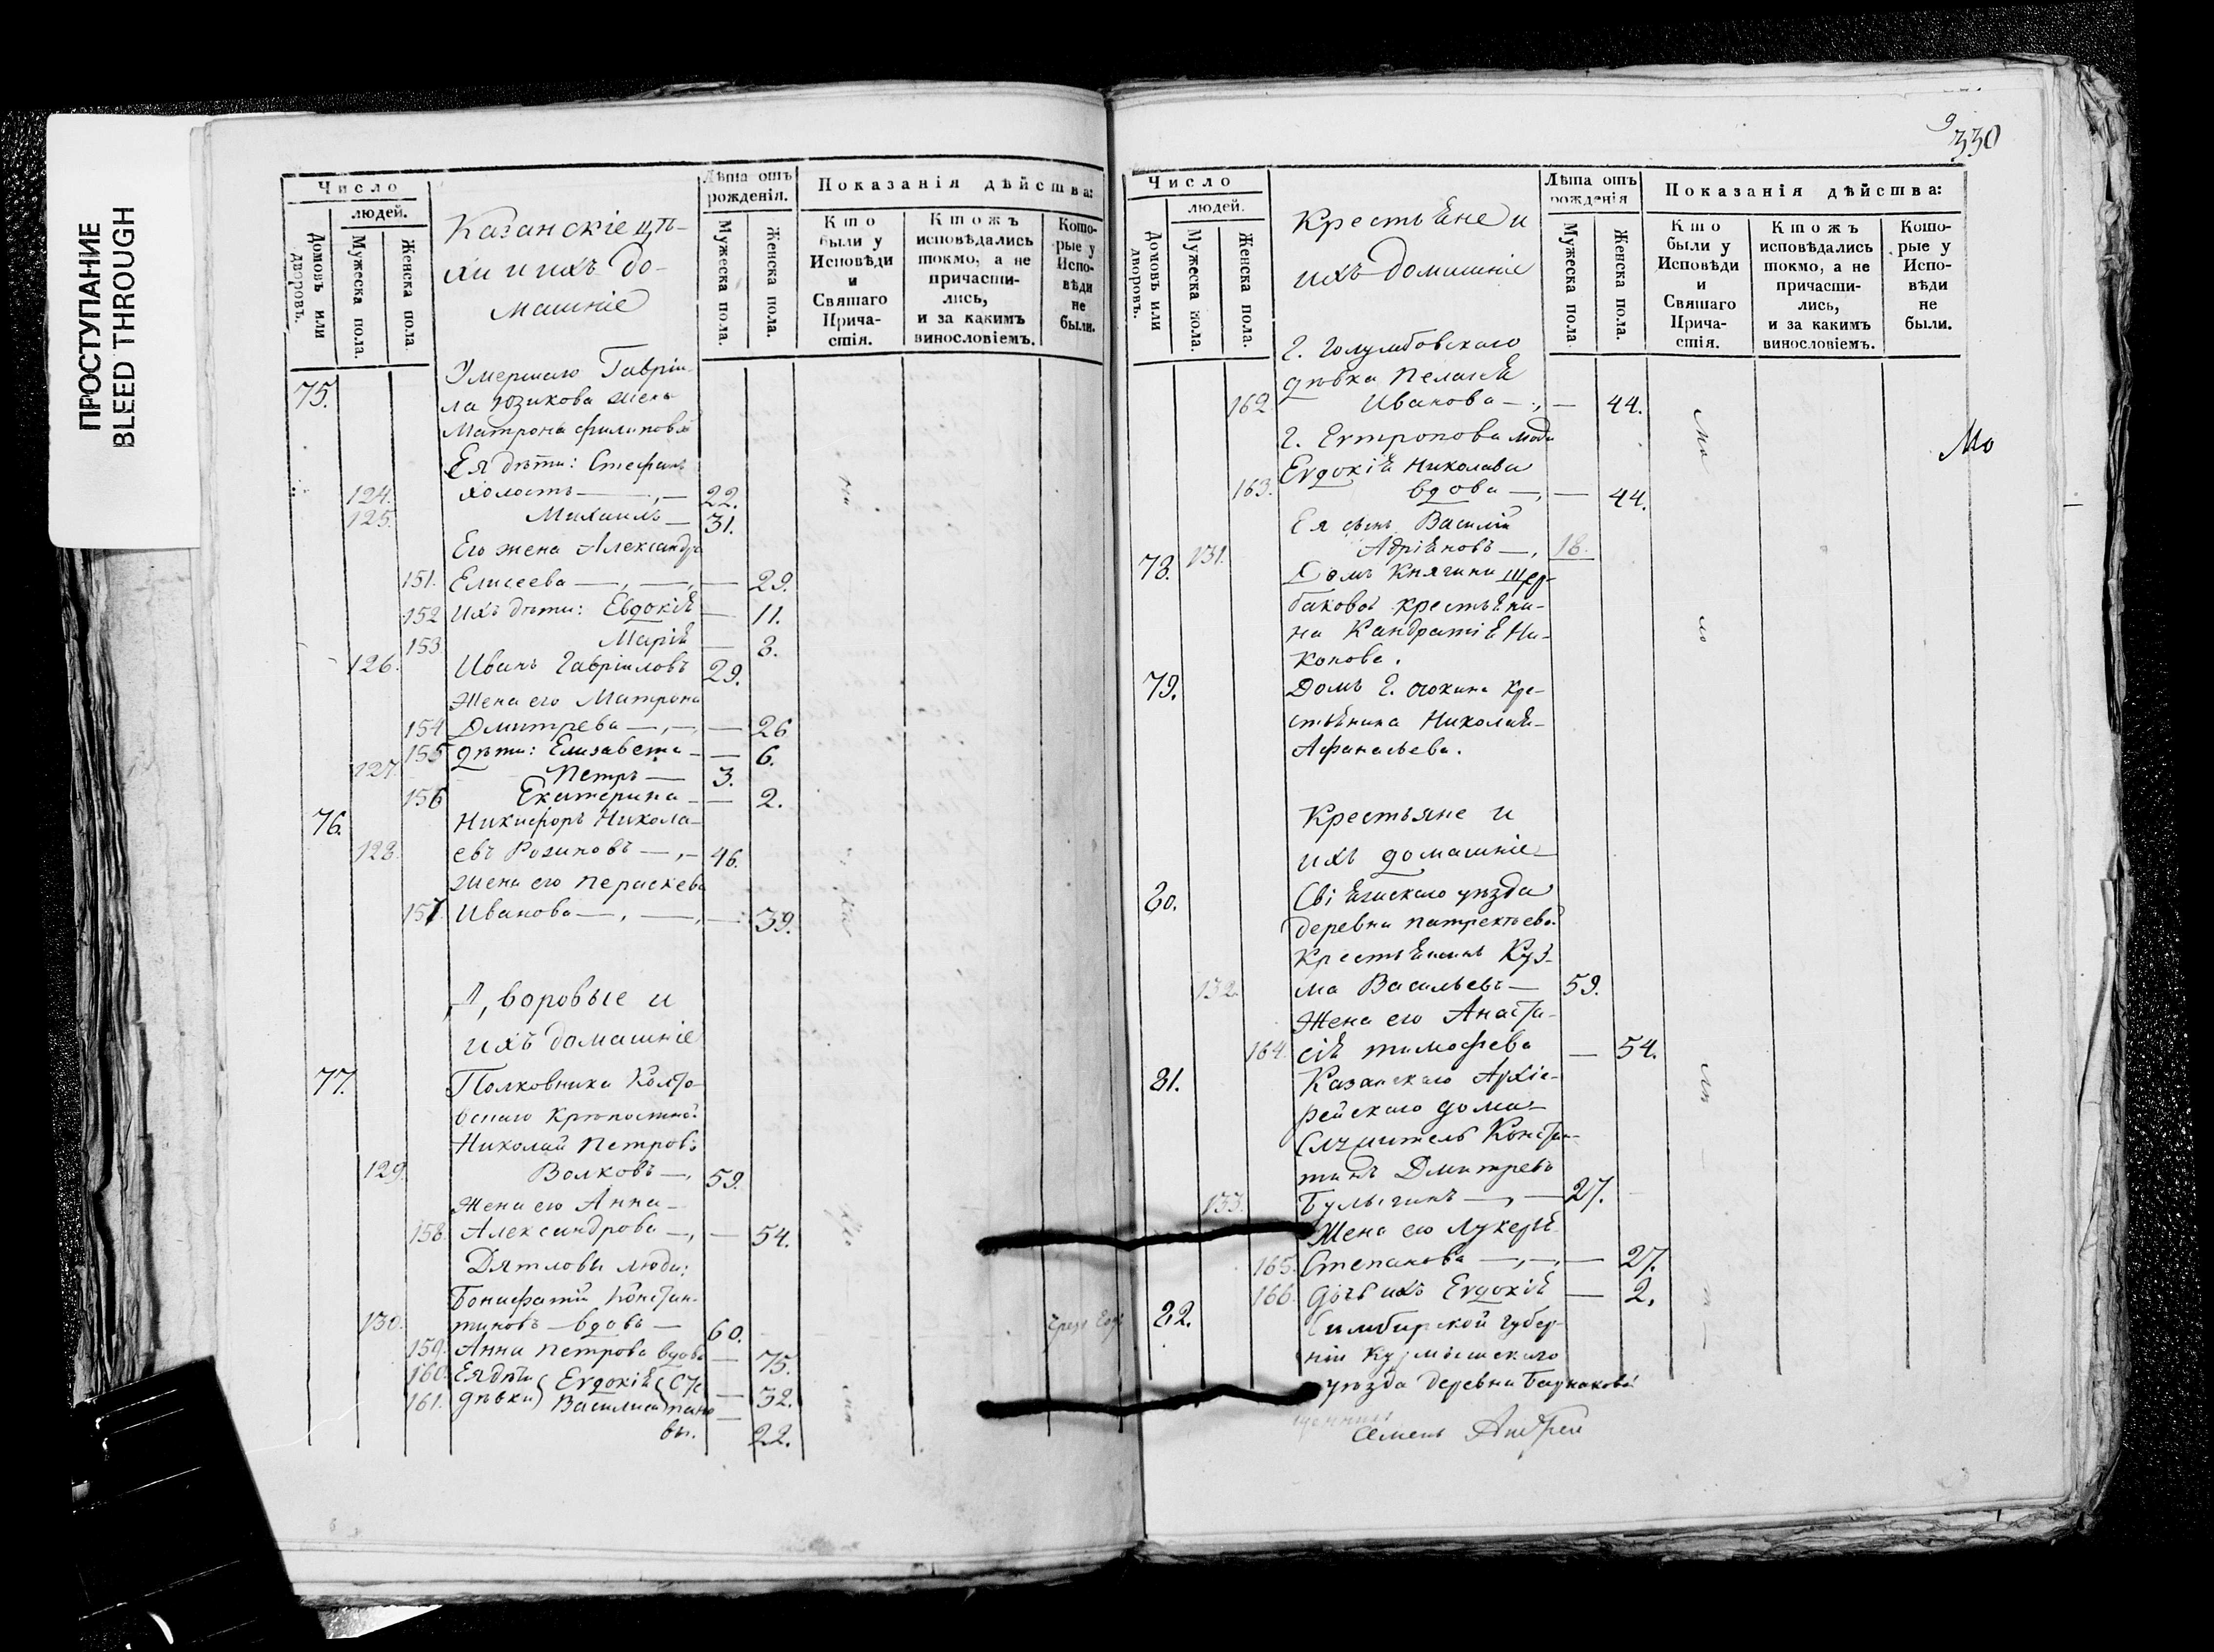 ПРОСТУПАНИЕ
BLEED THROUGH
Число
людей.
Домовъ или дворовъ.
Мужеска пола.
Женска пола.
Казанскіе цѣ-
хи и ихъ до-
машніе
Лѣта отъ рожденія.
Мужеска пола.
Женска пола.
Показанія дѣйства:
Кто были у Исповѣди и Святаго Прича-стія.
Ктожъ исповѣдались токмо, а не причасти-лись, и за какимъ винословіемъ.
Кото-рые у Испо-вѣди не были.
75. Умершаго Гавріи-
ла Юзикова жена
Матрона Филипова
Ея дѣти: Стефанъ
124. холостъ 22.
125. Михаилъ 31.
Его жена Александра
151. Елисеева 29.
152 Ихъ дѣти: Евдокіѣ 11.
153 Маріѣ 3.
126. Иванъ Гавріиловъ 29.
Жена его Матрона
154 Дмитрева 26
155 дѣти: Елизавета 6.
127 Петръ 3.
156 Екатерина 2.
76. Никифоръ Никола-
128. евъ Розиновъ 46.
жена его Параскева
157 Иванова 39.
Дворовые и
ихъ домашніе
77. Полковника
крѣпостной
Николай Петровъ
129 Волковъ 59.
Жена его Анна
158. Александрова 54.
Дятловы люди:
Бонифатій Констан-
130. тиновъ вдовъ 60.
159. Анна Петрова вдова 75.
160. Ея дѣти Евдокіѣ Сте 32.
161. дѣвки Василиса пано
вы. 22.
330
Число
людей.
Домовъ или дворовъ.
Мужеска пола.
Женска пола.
Крестьѣне и
ихъ домашніе
Лѣта отъ рожденія
Мужеска пола
Женска пола.
Показанія дѣйства:
Кто были у Исповѣди и Святаго Прича-стія.
Ктожъ исповѣдались токмо, а не причасти-лись, и за какимъ винословіемъ.
Кото-рые у Испо-вѣди не были.
Г. Голумбовскаго
дѣвка Пелагіѣ
162 Иванова 44.
Г. Евтропова люди
Евдокіѣ Николава
163. вдова 44.
Ея сынъ Василій
131. Адріѣновъ 18.
78. Домъ Княгини Щер-
баковой крестьѣни-
на Кандратіѣ Ни-
конова.
79. Домъ Г. кре-
стьѣнина Николаѣ
Афанасьева.
Крестьяне и
ихъ домашніе
80. Свіѣжскаго уѣзда
деревни Патрекѣевой
Крестьѣнинъ Куз-
132. ма Васильевъ 59.
Жена его Анаста-
164. сіѣ Тимофева 54.
81. Казанскаго Архіе-
рейскаго дома
Служитель Констан-
тинъ Дмитревъ
133. Булыгинъ 27.
Жена его Лукерьѣ
165. Степанова 27.
166. Дочь ихъ Евдокіѣ 2.
82. Симбирской губер-
ніи Курмышскаго
уѣзда деревни
Семенъ